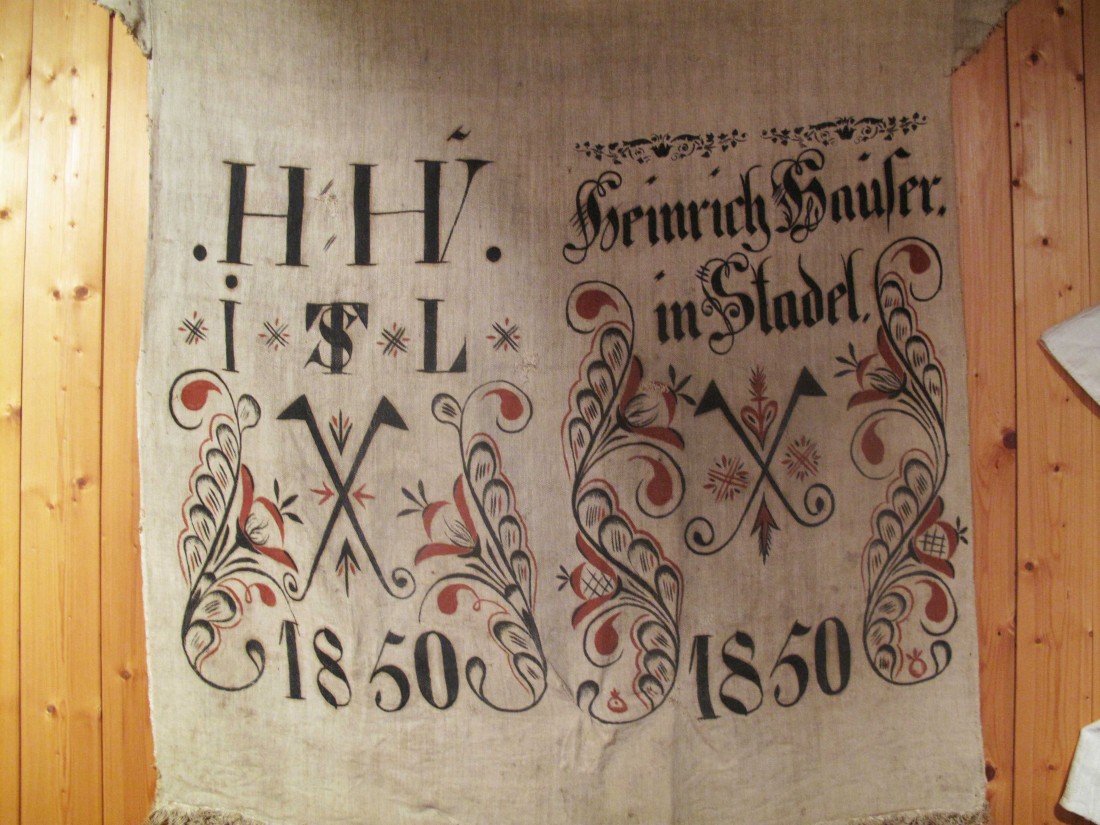 . H HV .
i ST L
1850
Heinrich Hauſer.
in Stadel.
1850